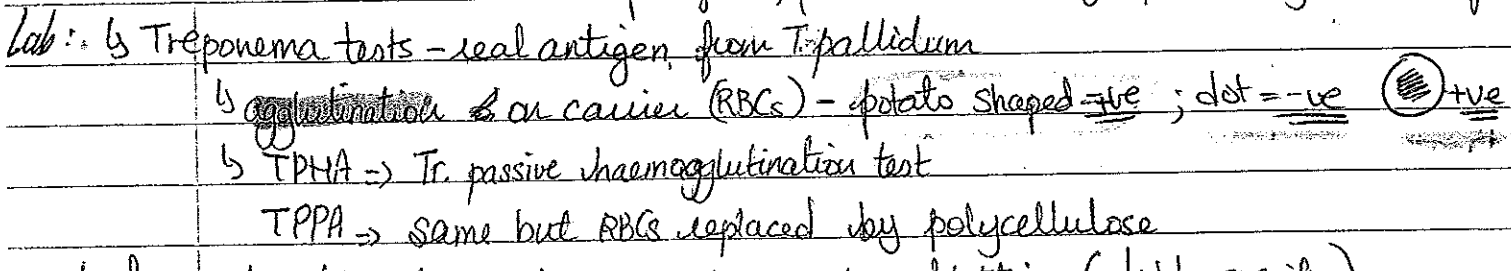 Lab:. ↳ Treponema tests - real antigen from T. pallidum
↳ agglutination on carrier (RBCs) - potato shaped = +ve ; dot = -ve +ve
↳ TPHA => Tr. passive haemagglutination test
TPPA => same but RBCs replaced by polycellulose